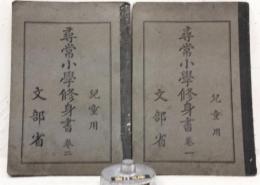 兒童用
尋常小學修身書 卷一
文部省
兒童用
尋常小學修身書 卷二
文部省